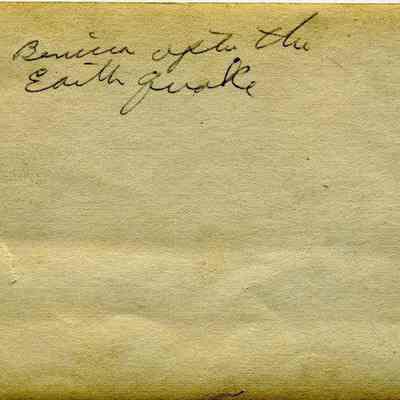 Benicia after the
Earth Quake